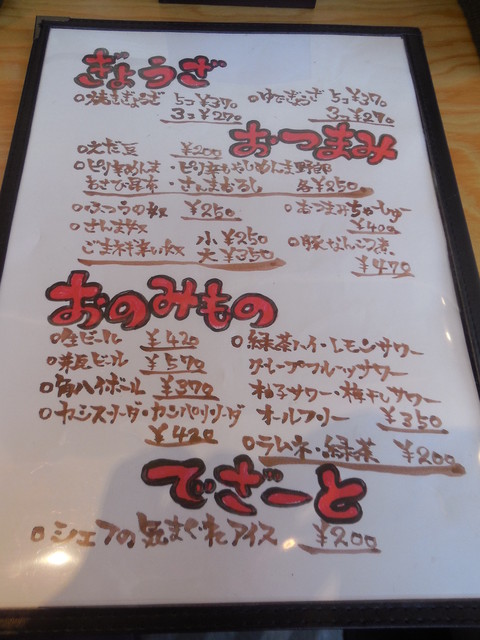 ぎょうざ
○焼きぎょうざ 5コ ¥370 ○ゆでぎょうざ 5コ ¥370
3コ ¥270 3コ ¥270
おつまみ
○えだ豆 ¥200
○ピリ辛めんま・ピリ辛もやしめんま野郎
あさひ昆布・さんまおろし 各¥250
○ふつうの奴 ¥250 ○おつまみちゃーしゅー
¥400
○さんま奴 小 ¥250
ごまネギ辛い奴 大 ¥350 ○豚なんこつ煮
¥470
おのみもの
○生ビール ¥420 ○緑茶ハイ・レモンサワー
○瓶ビール ¥570 グレープフルーツサワー
○角ハイボール ¥370 柚子サワー・梅干しサワー
○カシスソーダ・カンパリソーダ オールフリー ¥350
¥420
○ラムネ・緑茶 ¥200
でざーと
○シェフの気まぐれアイス ¥200